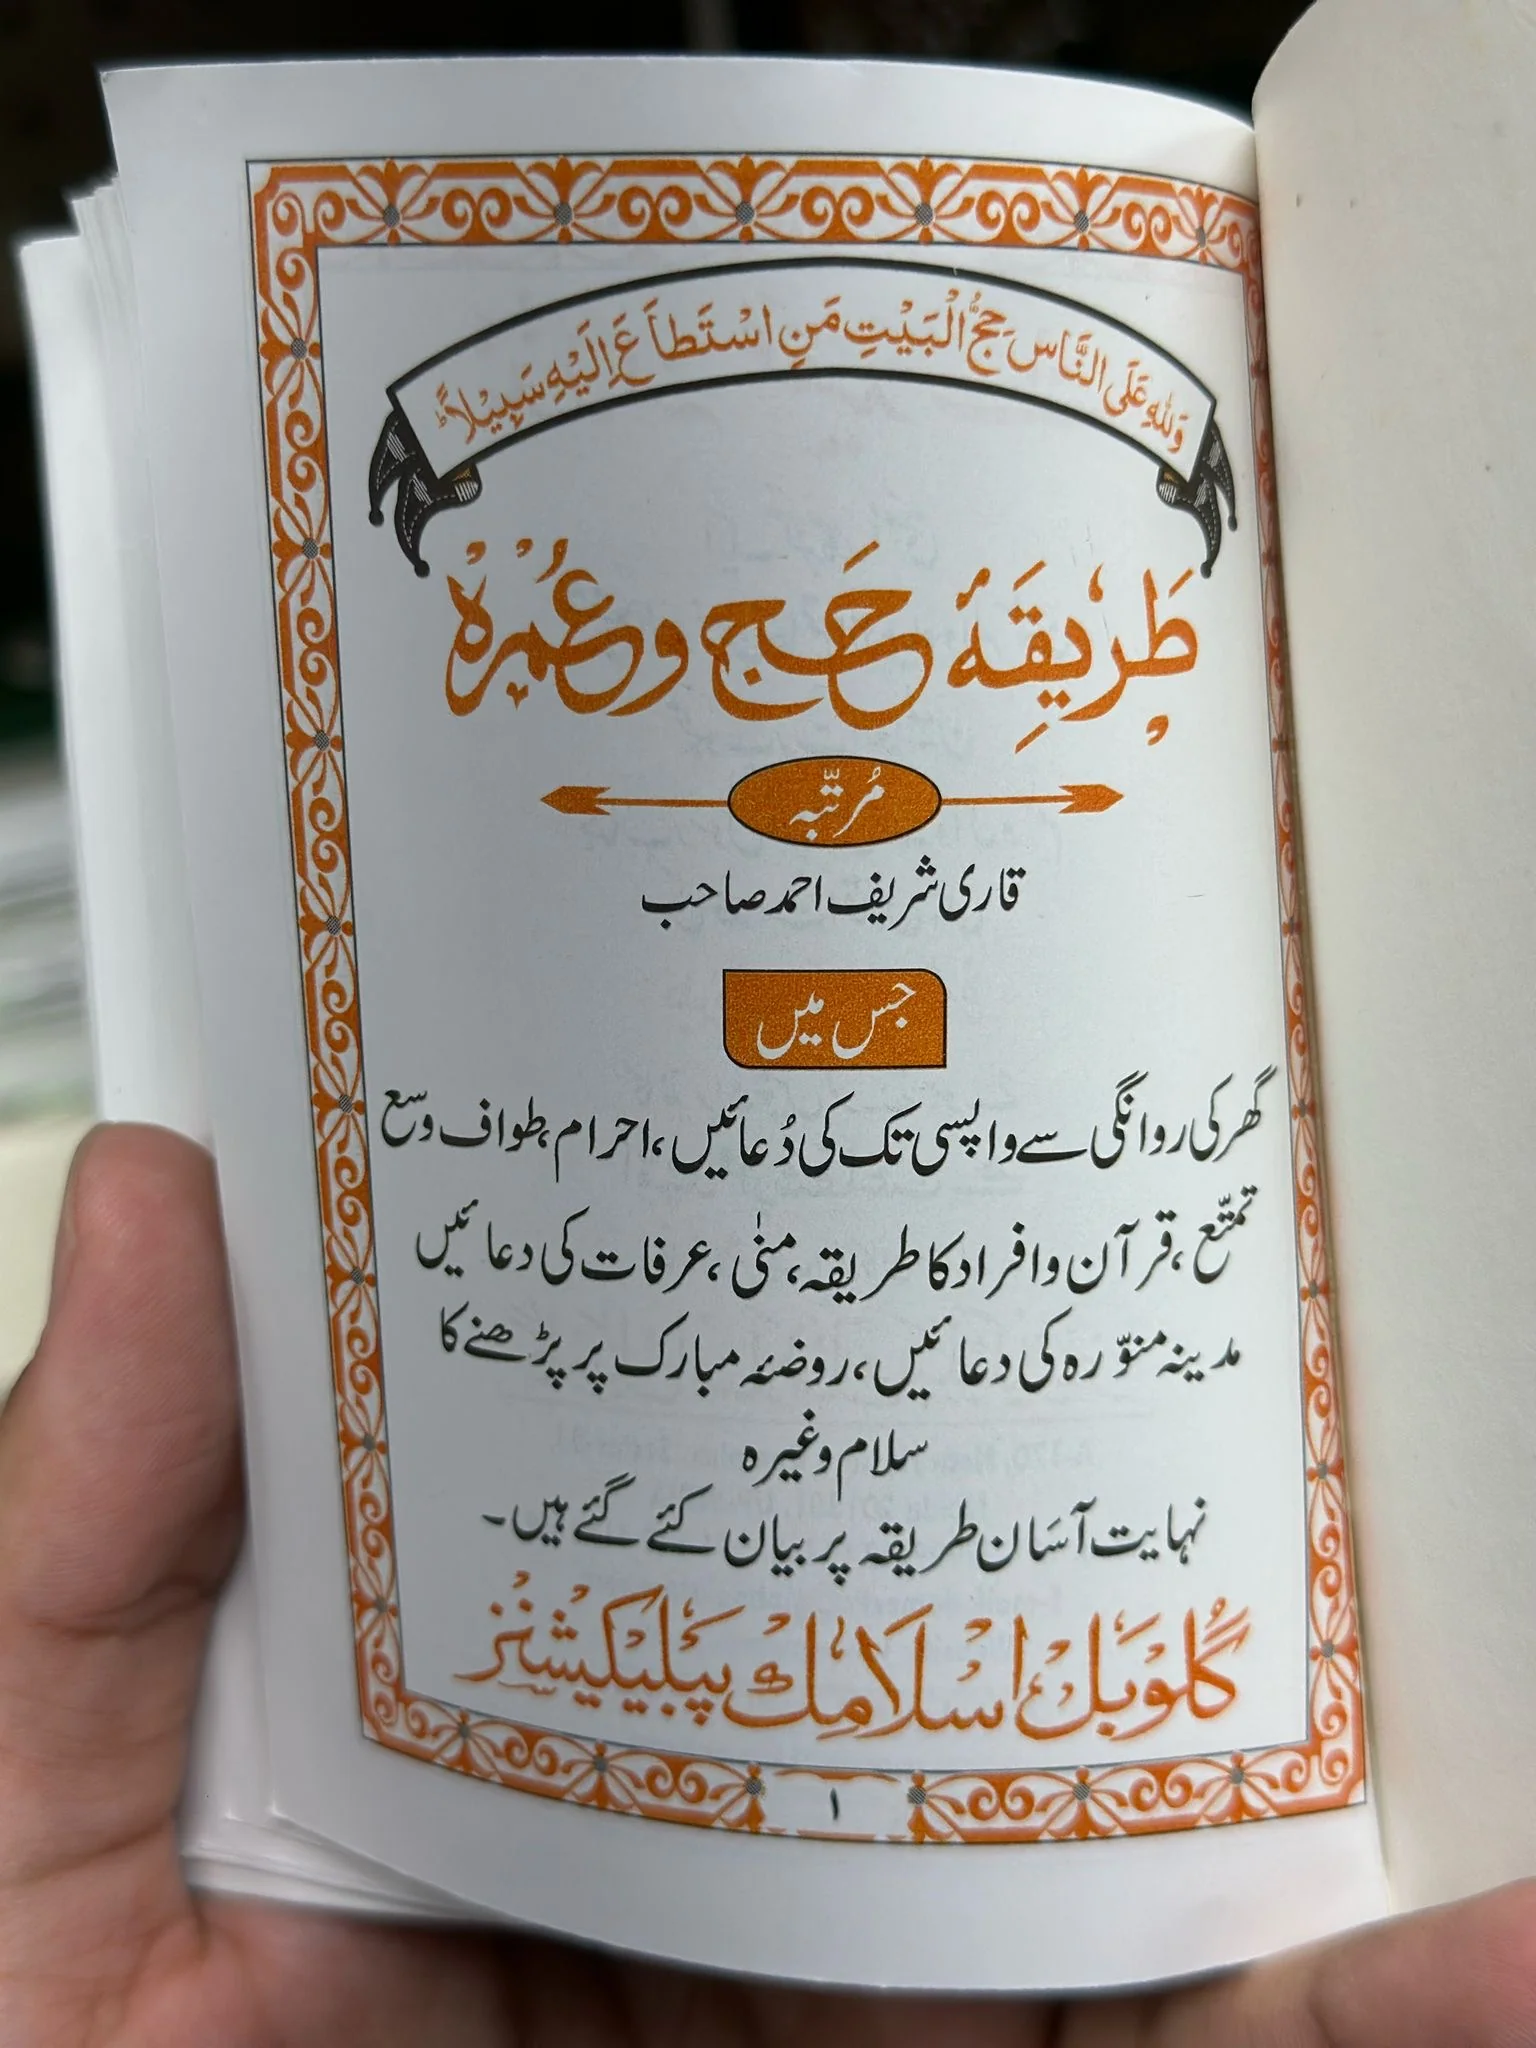 وَلِلّٰهِ عَلَى النَّاسِ حِجُّ الْبَيْتِ مَنِ اسْتَطَاعَ إِلَيْهِ سَبِيْلًا ط
طَرِيقَهٔ حَج وعُمْرَہْ
مُرتّبہ
قاری شریف احمد صاحب
جس میں
گھر کی روانگی سے واپسی تک کی دُعائیں، احرام، طواف وسع
تمتّع، قرآن وافراد کا طریقہ، منٰی، عرفات کی دعائیں
مدینہ منوّرہ کی دعائیں، روضئہ مبارک پر پڑھنے کا
سلام وغیرہ
نہایت آسَان طریقہ پر بیان کئے گئے ہیں۔
گلوبل اسلامک پبلیکیشنز
۱